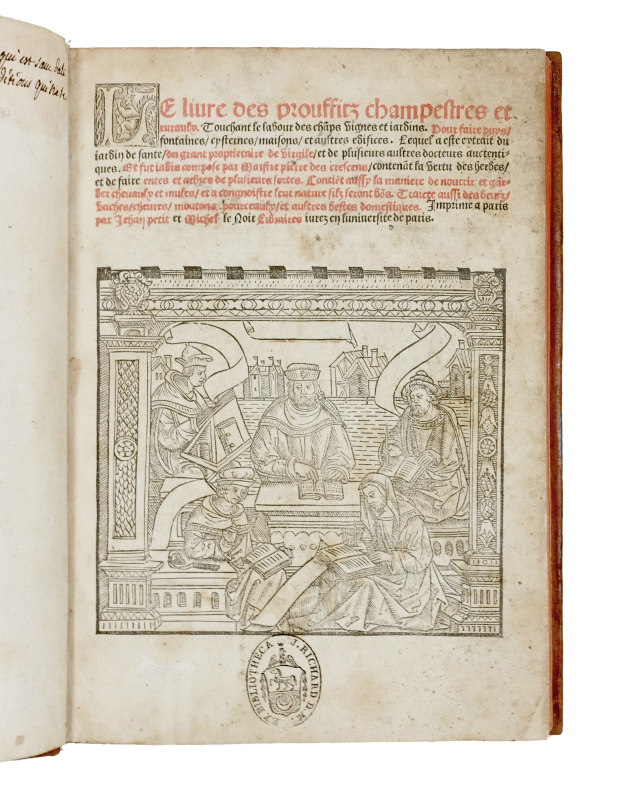 qui est sans date
ditions qui n'est
LE liure des prouffitz champestres et
ruraulx. Touchant le labour des chãps vignes et iardins. Pour faire puys/
fontaines/ cysternes/ maisons/ et aultres edifices. Lequel a este extrait du
iardin de sante/ du grant proprietaire de virgile/ et de plusieurs aultres docteurs auctenti-
ques. Et fut iadis compose par Maistre pierre des crescens/ contenãt la vertu des herbes/
et de faire entes et arbres de plusieurs sortes. Contiẽt aussy la maniere de nourrir et gar-
der cheuaulx et mules/ et a congnoistre leur nature silz seront bõs. Traicte aussi des beufz/
vaches/ cheures/ moutons/ pourceaulx/ et aultres bestes domestiques. Imprime a paris
par Jehan petit et Michel le Noir Libraires iurez en luniuersite de paris.
BIBLIOTHECA J. RICHARD D.M.